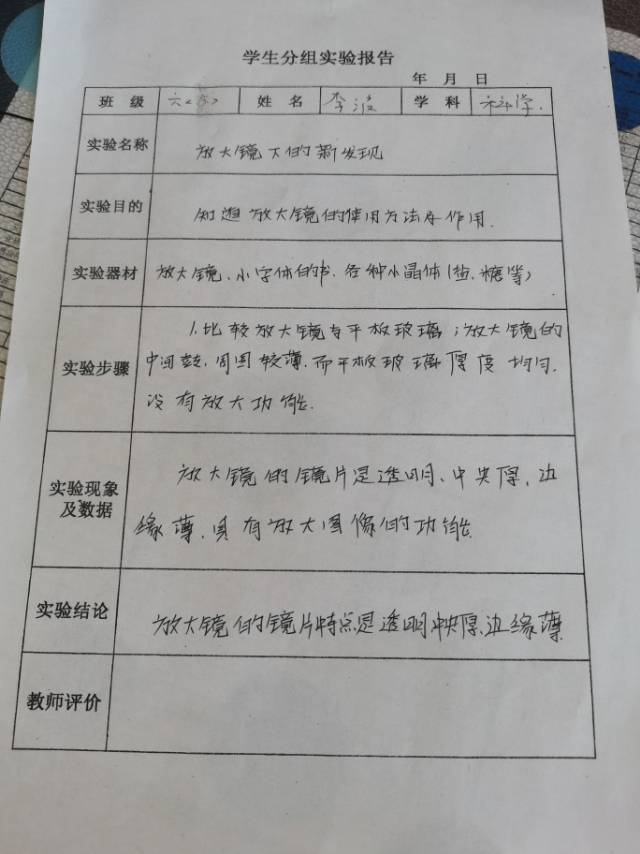 学生分组实验报告
年 月 日
班 级 六 姓 名 李 学 科 科学.
实验名称 放大镜下的新发现
实验目的 知道放大镜的使用方法及作用.
实验器材 放大镜、小字体的书、各种小晶体(盐、糖等)
1.比较放大镜与平板玻璃;放大镜的
实验步骤 中间鼓,周围较薄.而平板玻璃厚度均匀.
没有放大功能.
实验现象 放大镜的镜片是透明、中央厚,边
及数据 缘薄,具有放大图像的功能.
实验结论 放大镜的镜片特点是透明中央厚、边缘薄
教师评价